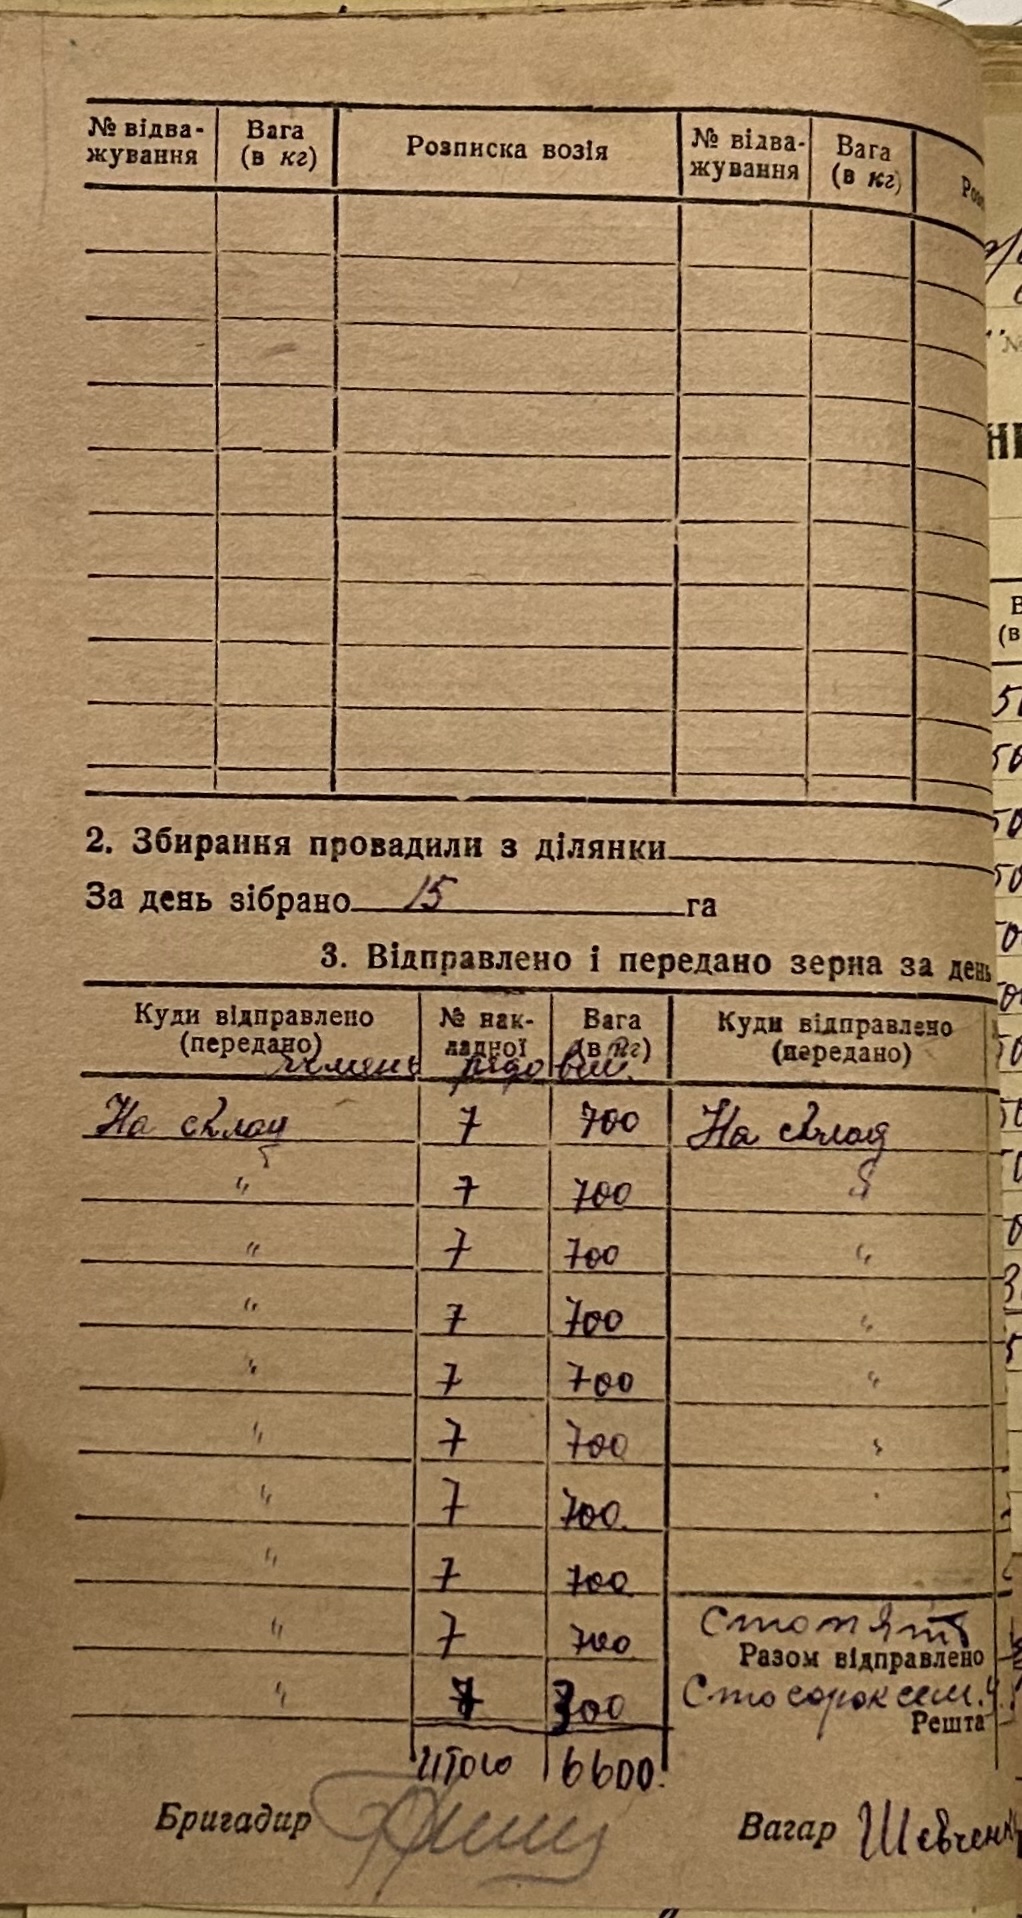 № відва-жування Вага (в кг) Розписка возія № відва-жування Вага (в кг) Роз
2. Збирання провадили з ділянки
За день зібрано 15 га
3. Відправлено і передано зерна за день
Куди відправлено (передано) № нак-ладної Вага (в кг) Куди відправлено (передано)
ячмень рядовий
На склад 7 700 На склад
" 7 700
" 7 700 "
" 7 700 "
" 7 700 "
" 7 700 "
" 7 700
" 7 700
" 7 700 Сто пять
Разом відправлено
" 7 300 Сто сорок сем.
Решта
Итого 6600.
Бригадир Вагар Шевченк